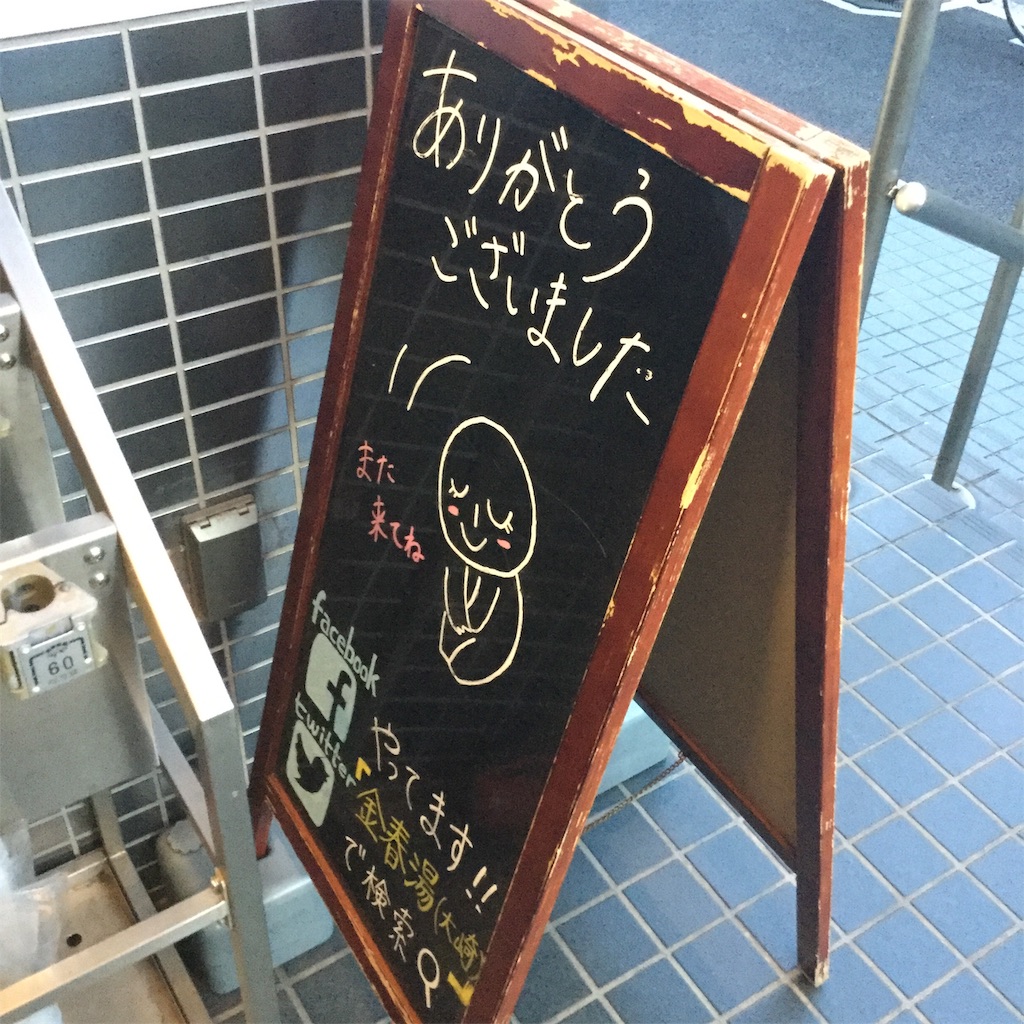 ありがとう
ございました
また
来てね
facebook
f
twitter
やってます!!
「金春湯(大崎)」
で検索
60